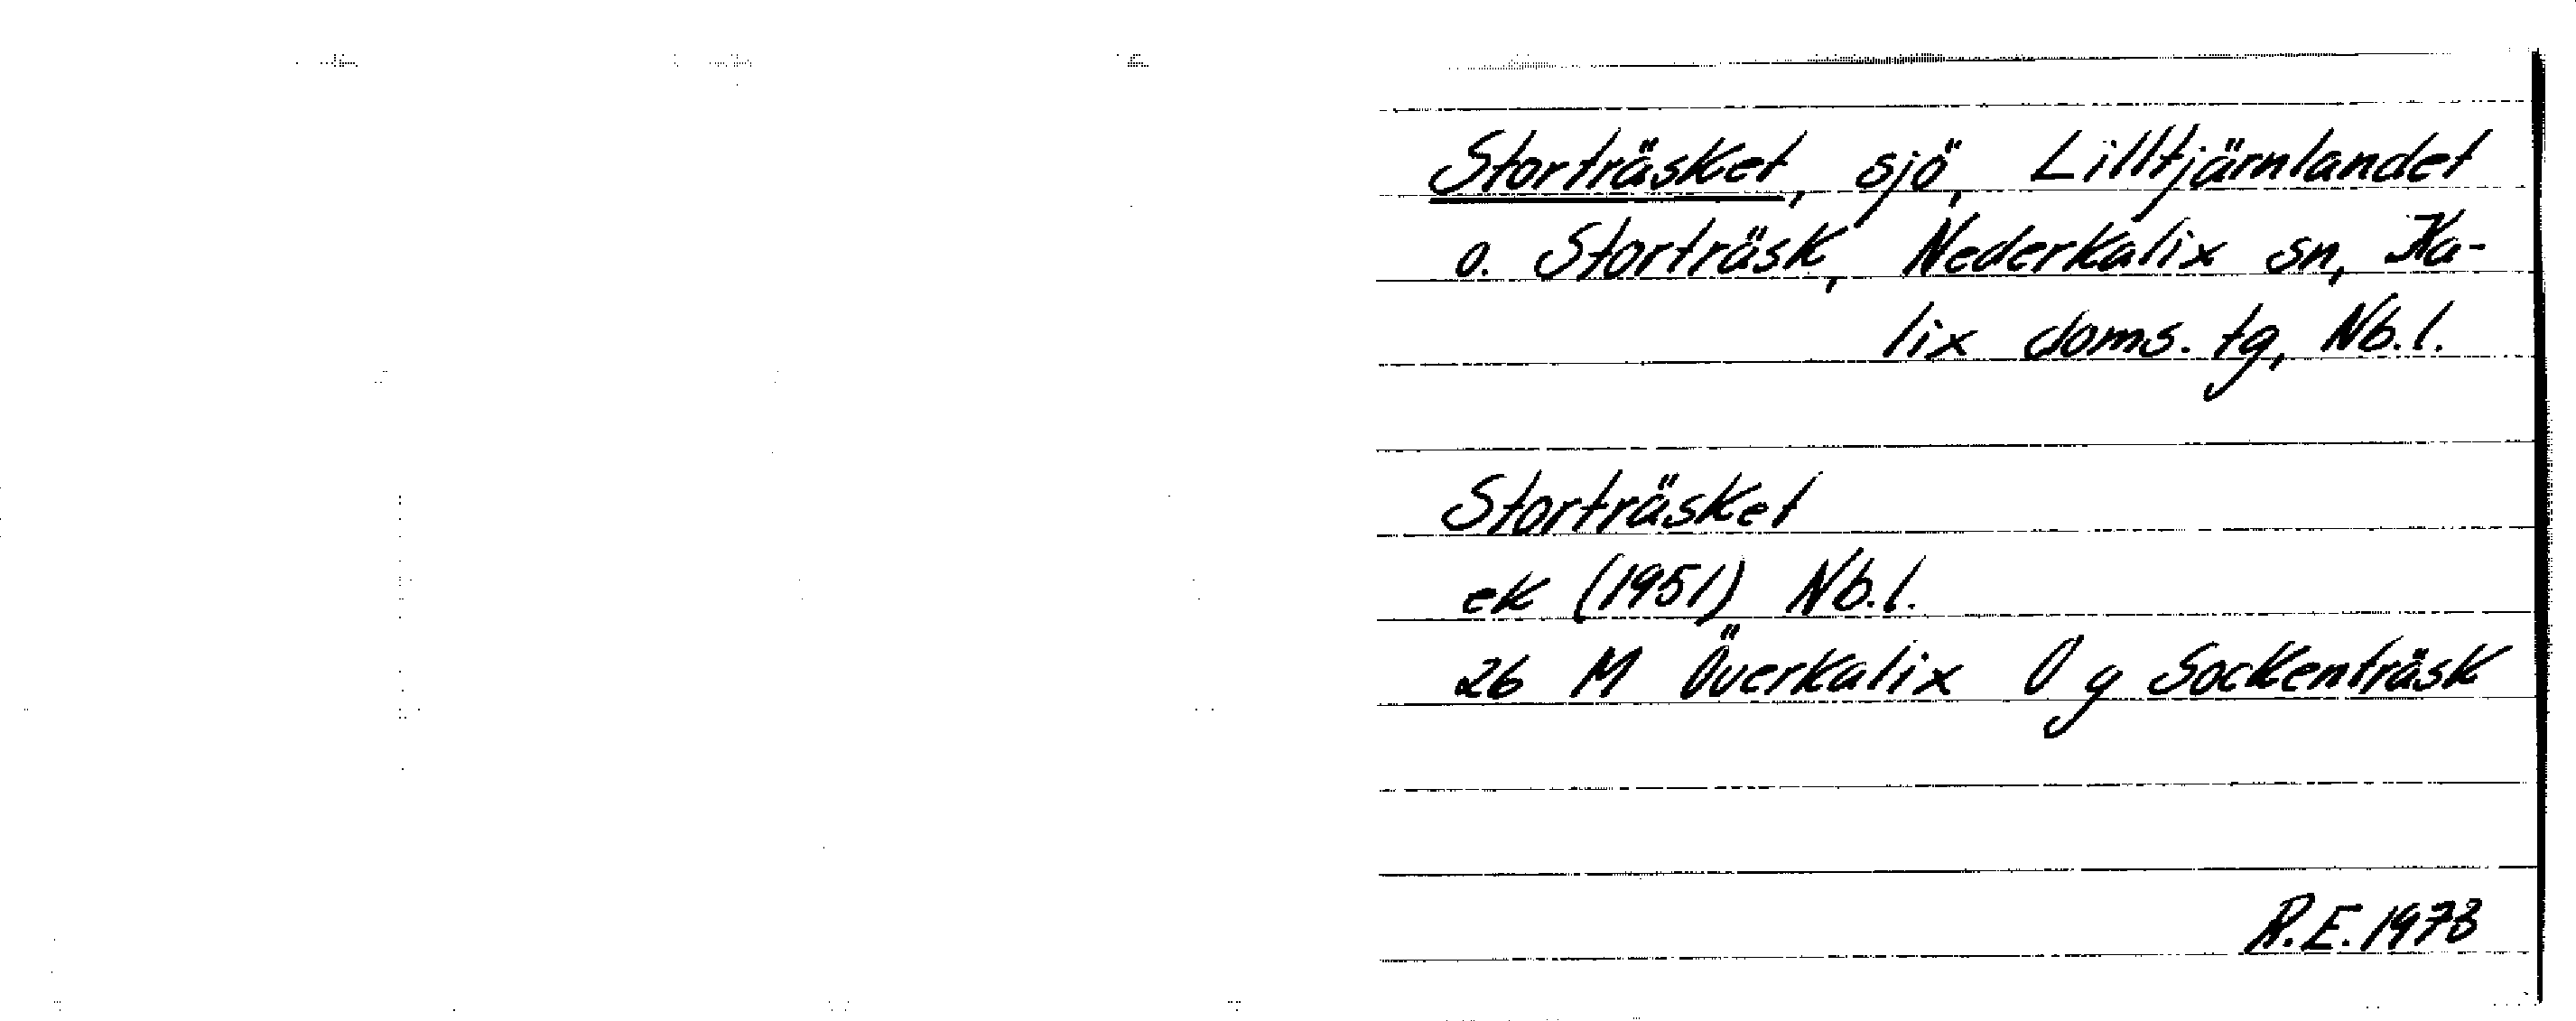 Storträsket, sjö, Lilltjärnlandet
o. Storträsk, Nederkalix sn, Ka-
lix doms. tg, Nb.l.
Storträsket
ek (1951) Nb.l.
26 M Överkalix O g Sockenträsk
R.E. 1973